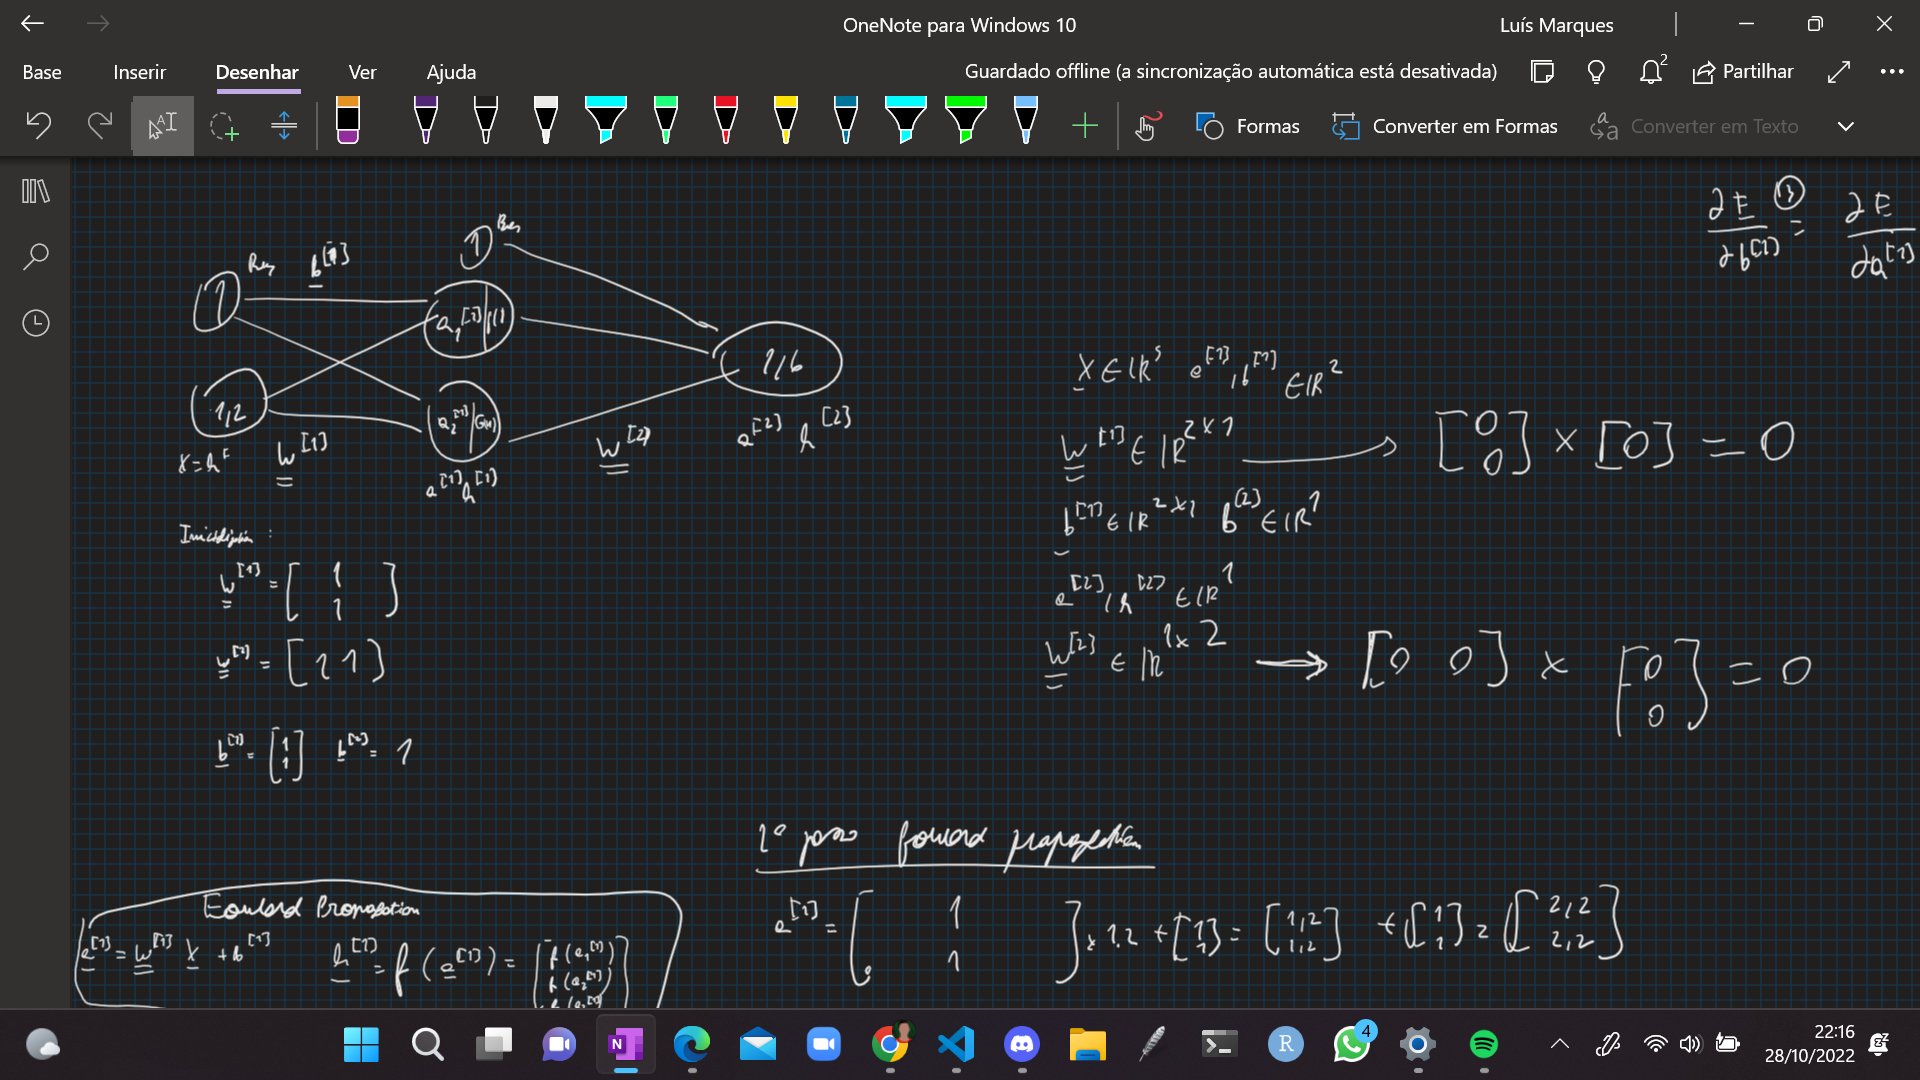 OneNote para Windows 10
Luís Marques
Base Inserir Desenhar Ver Ajuda
Guardado offline (a sincronização automática está desativada)
2
Partilhar
Formas
Converter em Formas
Converter em Texto
∂E ① = ∂E
∂b[1] ∂a[1]
1 b[1]
1
a₁[1]
1/6
1,2
a₂[1]
w[1]
w[2]
a[2] h[2]
a[1] h[1]
w[1] = [1 1]
w[2] = [1 1]
b[1] = [1 1] b[2] = 1
w[1] ∈ ℝ2×1 → [0 0] × [0] = 0
b[1] ∈ ℝ2×1 b[2] ∈ ℝ1
a[2], h[2] ∈ ℝ1
w[2] ∈ ℝ1×2 → [0 0] × [0 0] = 0
1º passo forward propagation
a[1] = [1 1] × 1.2 + [1 1] = [1,2 1,2] + [1 1] = [2,2 2,2]
Forward Propagation
a[1] = w[1] x + b[1] h[1] = f(a[1]) = [f(a₁[1]) f(a₂[1])
4
22:16
28/10/2022